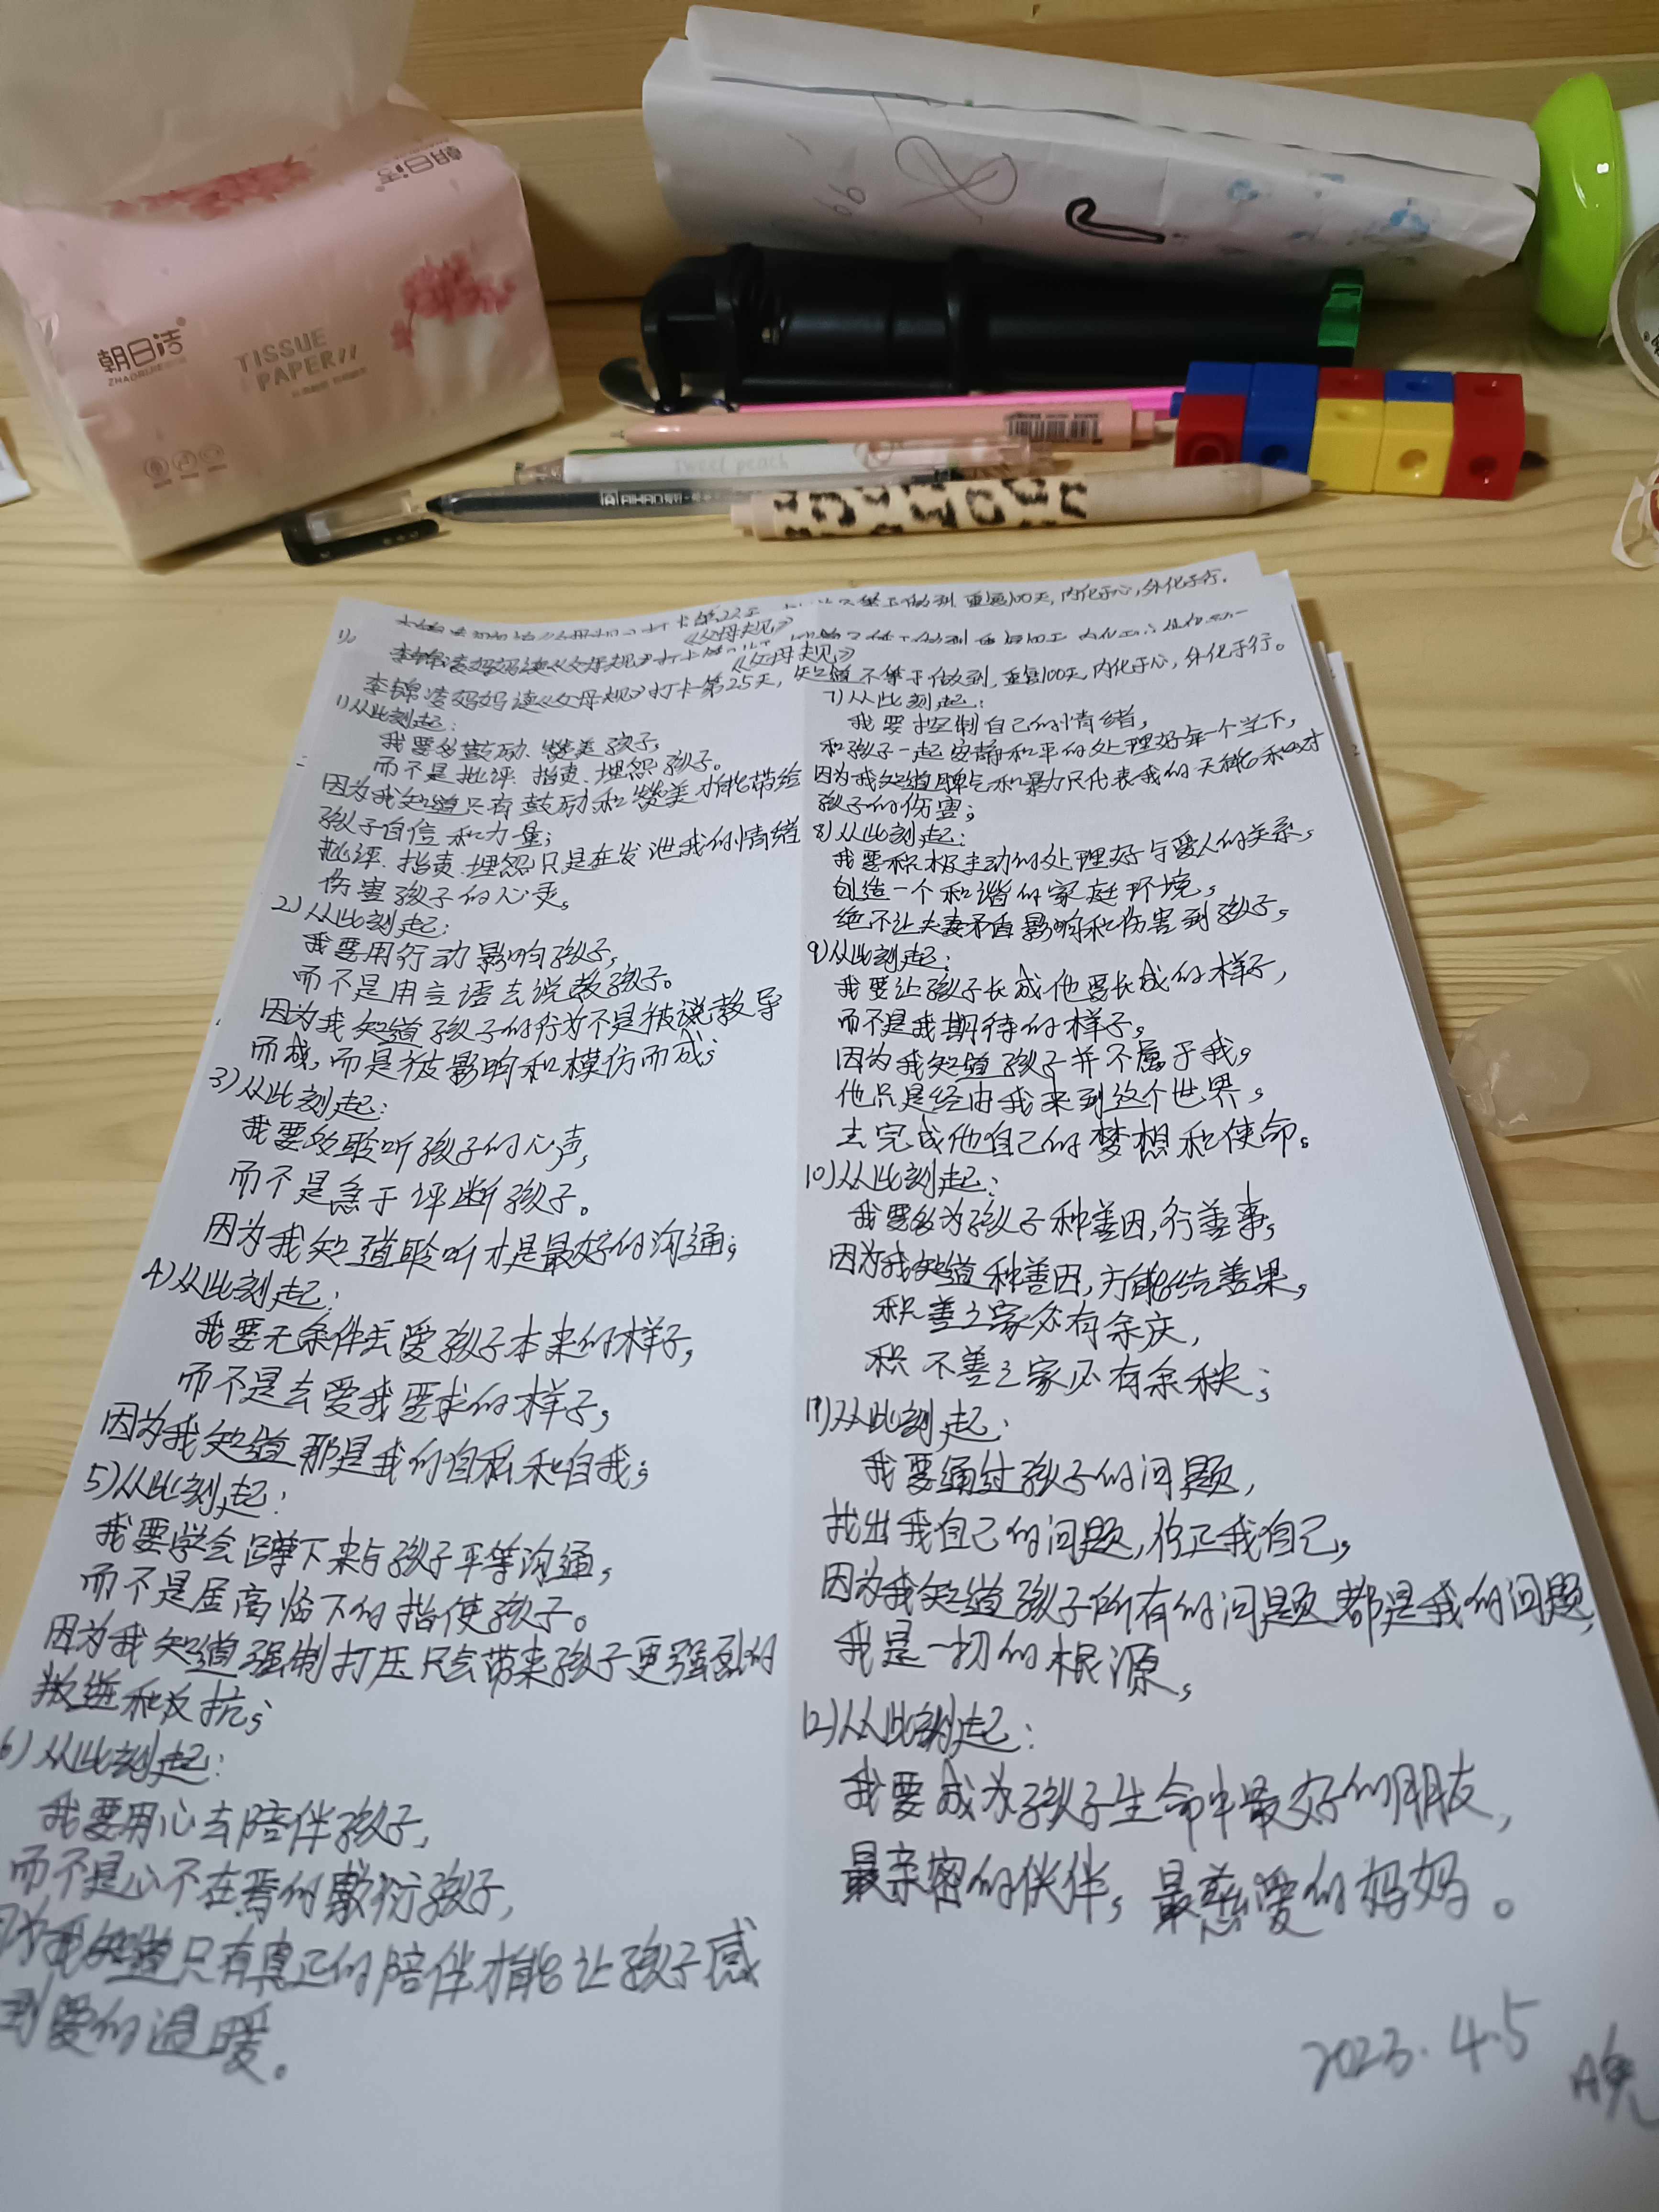 朝日洁
朝日洁
ZHAORIJIE
TISSUE
PAPER//
sweet peach
AIHAO
重复100天,内化于心,外化于行.
《父母规》
《父母规》
李锦凌妈妈读《父母规》打卡第25天,知道不等于做到,重复100天,内化于心,外化于行。
1)从此刻起:
我要多鼓励.赞美孩子,
而不是批评.指责.埋怨孩子。
因为我知道只有鼓励和赞美才能带给
孩子自信和力量;
批评.指责.埋怨只是在发泄我的情绪
伤害孩子的心灵。
2)从此刻起:
我要用行动影响孩子,
而不是用言语去说教孩子。
因为我知道孩子的行为不是被说教导
而成,而是被影响和模仿而成;
3)从此刻起:
我要多聆听孩子的心声,
而不是急于评断孩子。
因为我知道聆听才是最好的沟通;
4)从此刻起:
我要无条件去爱孩子本来的样子,
而不是去爱我要求的样子,
因为我知道那是我的自私和自我;
5)从此刻起:
我要学会蹲下来与孩子平等沟通,
而不是居高临下的指使孩子。
因为我知道强制打压只会带来孩子更强烈的
叛逆和反抗;
6)从此刻起:
我要用心去陪伴孩子,
而不是心不在焉的敷衍孩子,
因为我知道只有真正的陪伴才能让孩子感
到爱的温暖。
7)从此刻起:
我要控制自己的情绪,
和孩子一起安静和平的处理好每一个当下,
因为我知道脾气和暴力只代表我的无能和对
孩子的伤害;
8)从此刻起:
我要积极主动的处理好与爱人的关系,
创造一个和谐的家庭环境,
绝不让夫妻矛盾影响和伤害到孩子,
9)从此刻起:
我要让孩子长成他要长成的样子,
而不是我期待的样子,
因为我知道孩子并不属于我,
他只是经由我来到这个世界,
去完成他自己的梦想和使命。
10)从此刻起:
我要多为孩子种善因,行善事,
因为我知道种善因,方能结善果,
积善之家必有余庆,
积不善之家必有余秧;
11)从此刻起:
我要通过孩子的问题,
找出我自己的问题,修正我自己,
因为我知道孩子所有的问题都是我的问题,
我是一切的根源,
12)从此刻起:
我要成为孩子生命中最好的朋友,
最亲密的伙伴,最慈爱的妈妈。
2023.4.5
晚